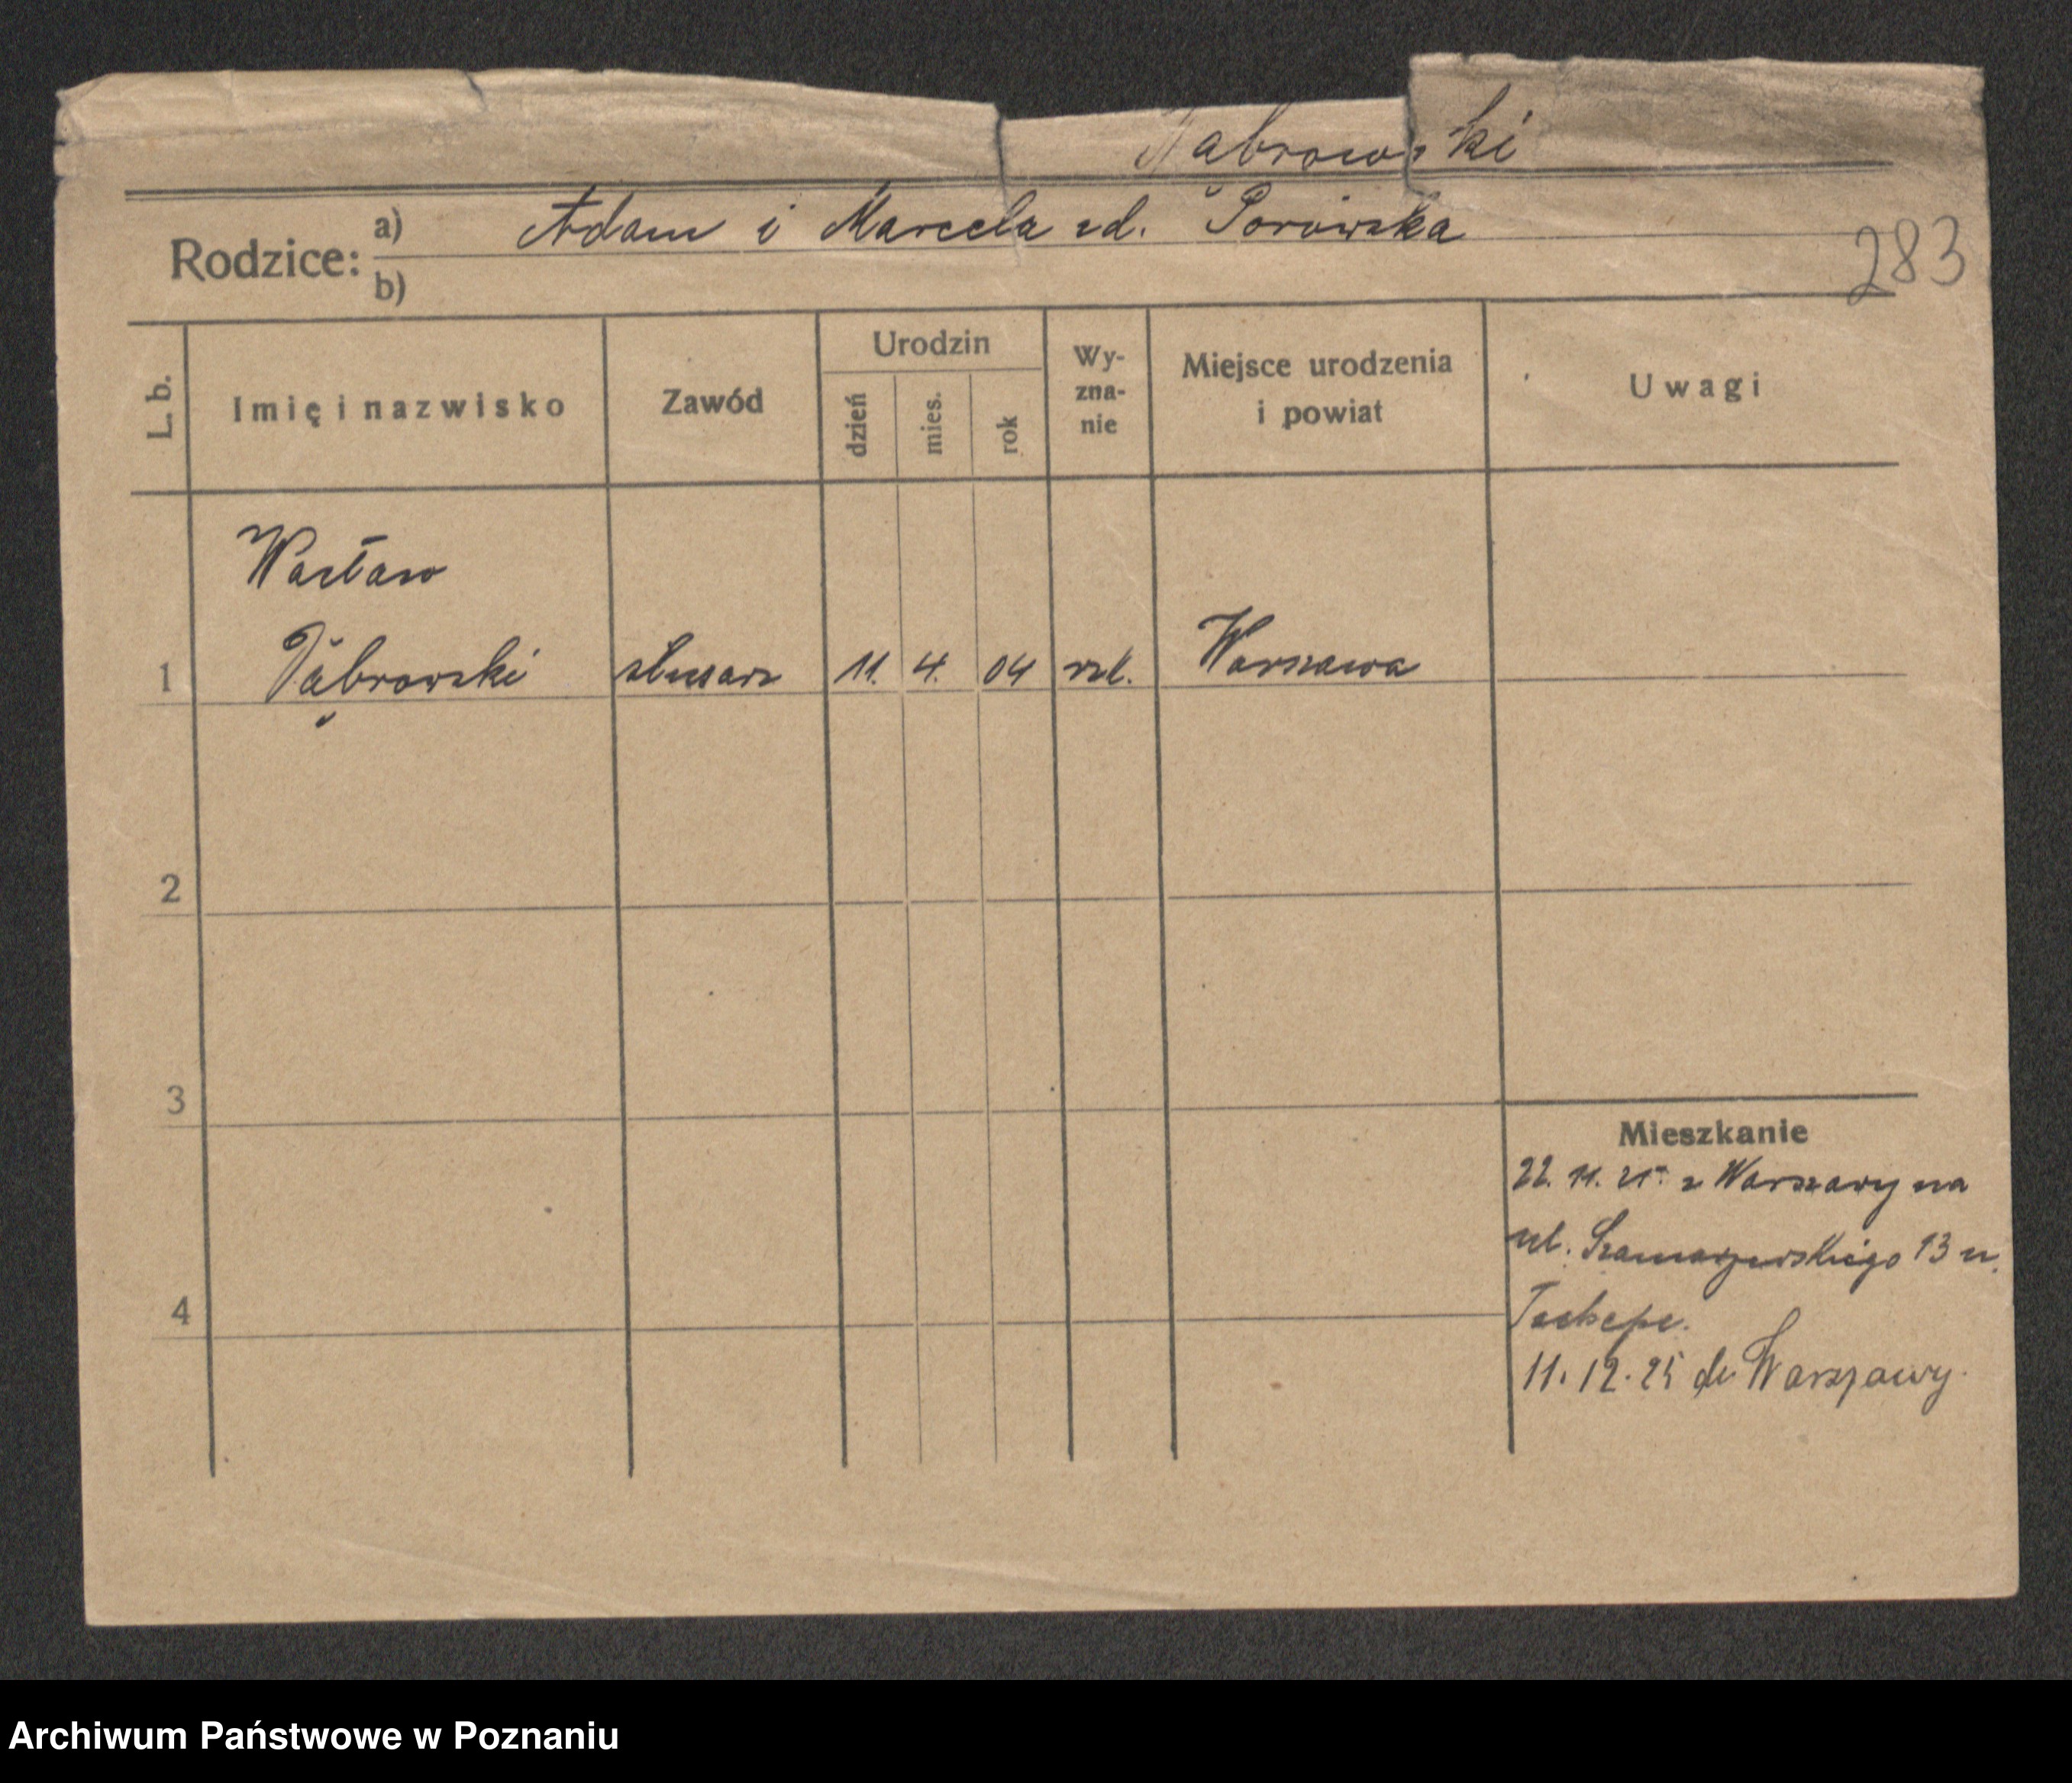 Dąbrowski
Rodzice: a) Adam i Marcela zd. Porowska
b)
283
L. b.
Imię i nazwisko
Zawód
Urodzin
dzień
mies.
rok
Wy-
zna-
nie
Miejsce urodzenia
i powiat
Uwagi
Wacław
1 Dąbrowski ślusarz 11. 4. 04 rzk. Warszawa
2
3
4
Mieszkanie
22. 11. z Warszawy na
ul. Szamarzewskiego 13 u.
11. 12. 25 do Warszawy.
Archiwum Państwowe w Poznaniu